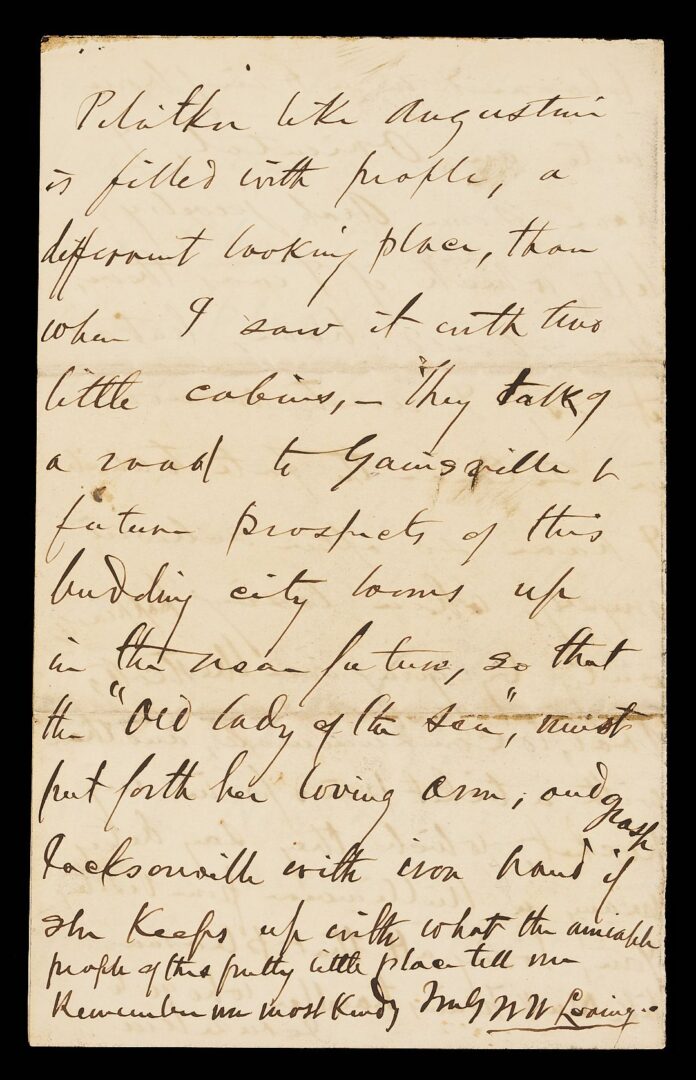 Pilatka like Augustine
is filled with people, a
different looking place, than
when I saw it with two
little cabins, – They talk of
a road to Gainsville &
future prospects of this
budding city looms up
in the near future, so that
the "Old lady of the Sea", must
put forth her loving arm, and grasp
Jacksonville with iron hand if
she keeps up with what the amiable
people of this pretty little place tell me
Remember me most kindly Truly W W Loring